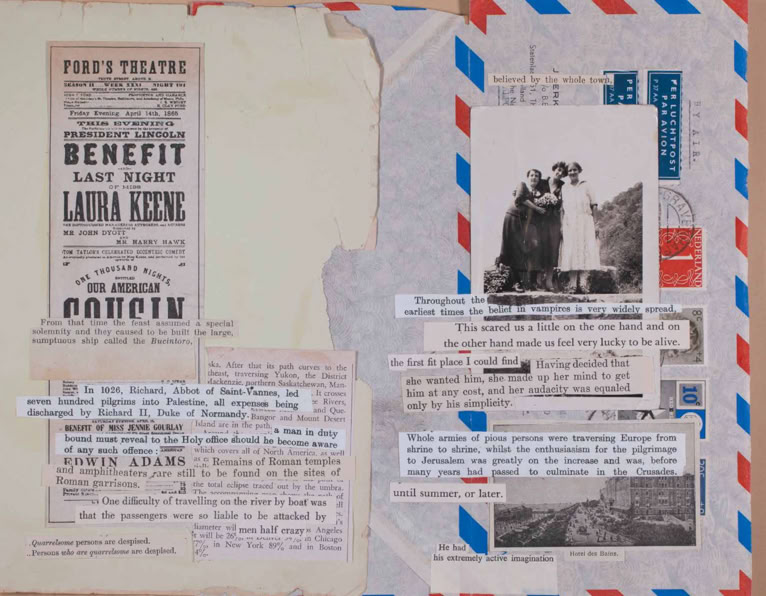 FORD'S THEATRE
TENTH STREET, ABOVE E
SEASON II WEEK XXXI NIGHT 191
Friday Evening April 14th, 1865
THIS EVENING
PRESIDENT LINCOLN
BENEFIT
LAST NIGHT
OF MISS
LAURA KEENE
MR JOHN DYOTT
AND
MR HARRY HAWK
TOM TAYLOR'S CELEBRATED ECCENTRIC COMEDY
ONE THOUSAND NIGHTS,
OUR AMERICAN
COUSIN
From that time the feast assumed a special
solemnity and they caused to be built the large,
sumptuous ship called the Bucintoro.
ska. After that its path curves to the
theast, traversing Yukon, the District
Mackenzie, northern Saskatchewan, Man-
It crosses
e Rivers,
and Que-
Bangor and Mount Desert
Island are in the path.
In 1026, Richard, Abbot of Saint-Vannes, led
seven hundred pilgrims into Palestine, all expenses being
discharged by Richard II, Duke of Normandy.
BENEFIT OF MISS JENNIE GOURLAY
a man in duty
bound must reveal to the Holy office should he become aware
of any such offence:
which covers all of North America, as well
EDWIN ADAMS
Remains of Roman temples
and amphitheaters are still to be found on the sites of
Roman garrisons.
the total eclipse traced out by the umbra.
One difficulty of travelling on the river by boat was
that the passengers were so liable to be attacked by
men half crazy
diameter wil
s Angeles
in Chicago
in New York 89% and in Boston
Quarrelsome persons are despised.
Persons who are quarrelsome are despised.
believed by the whole town.
PER LUCHTPOST
PAR AVION
PER LUCHTPOST
PAR AVION
BY AIR.
NEDERLAND
1
Throughout the
earliest times the belief in vampires is very widely spread,
This scared us a little on the one hand and on
the other hand made us feel very lucky to be alive.
the first fit place I could find
Having decided that
she wanted him, she made up her mind to get
him at any cost, and her audacity was equaled
only by his simplicity.
10
Whole armies of pious persons were traversing Europe from
shrine to shrine, whilst the enthusiasm for the pilgrimage
to Jerusalem was greatly on the increase and was, before
many years had passed to culminate in the Crusades.
until summer, or later.
He had
his extremely active imagination
Hotel des Bains.